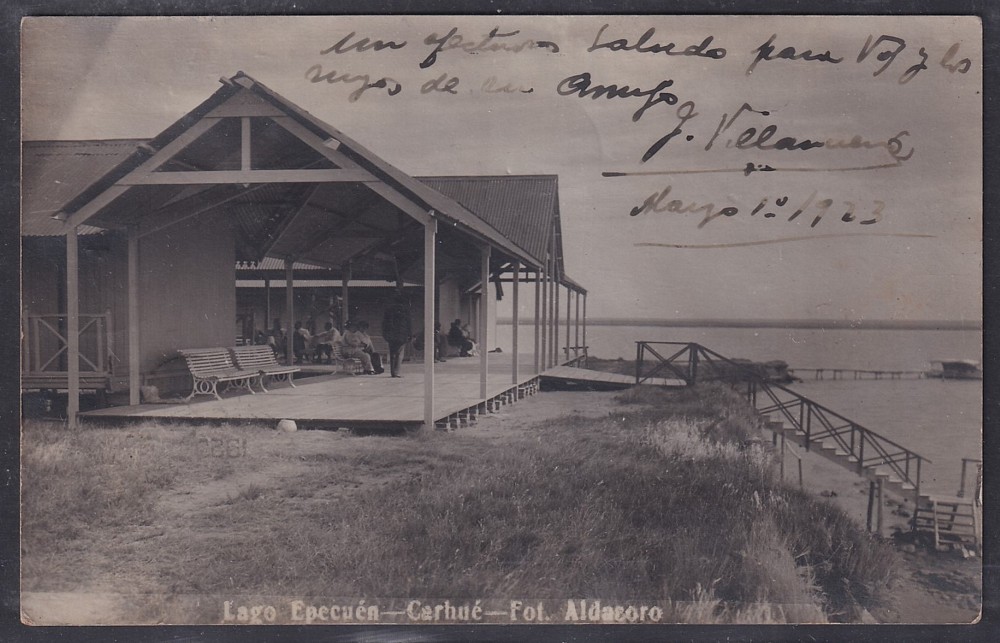 un efectuoso Saludo para Vd y los
suyos de su Amigo
J. Villanueva
Marzo 1º/1923
Lago Epecuén—Carhué—Fot. Aldacoro